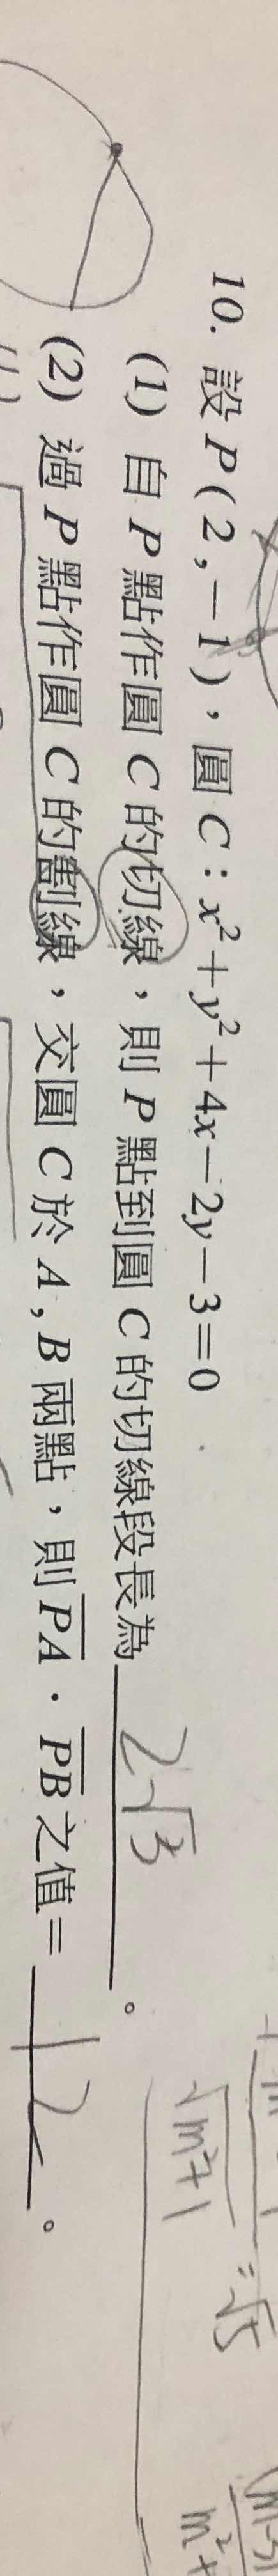 10. 設 P(2,-1)，圓 C：x²+y²+4x-2y-3=0
(1) 自 P 點作圓 C 的切線，則 P 點到圓 C 的切線段長為 2√3 。
(2) 過 P 點作圓 C 的割線，交圓 C 於 A , B 兩點，則 P̅A̅ · P̅B̅ 之值= 12 。
√m²+1
=√5